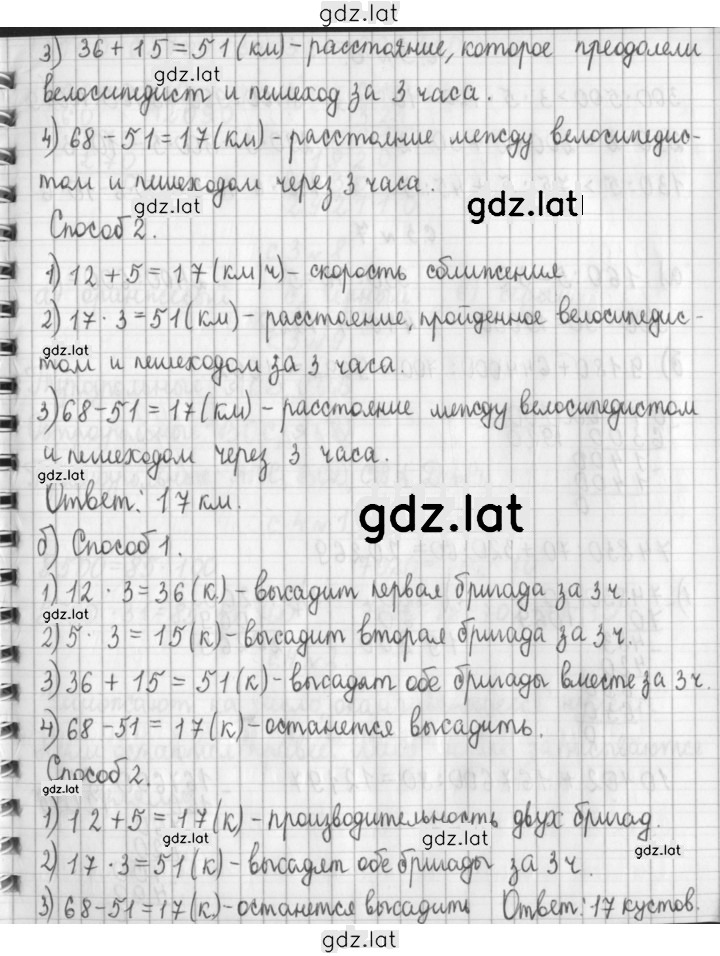 gdz.lat
3) 36 + 15 = 51 (км) - расстояние, которое преодолели
gdz.lat
велосипедист и пешеход за 3 часа.
4) 68 - 51 = 17 (км) - расстояние между велосипедис-
том и пешеходом через 3 часа.
gdz.lat
gdz.lat
Способ 2.
1) 12 + 5 = 17 (км/ч) - скорость сближения
2) 17 · 3 = 51 (км) - расстояние, пройденное велосипедис-
gdz.lat
том и пешеходом за 3 часа.
3) 68 - 51 = 17 (км) - расстояние между велосипедистом
и пешеходом через 3 часа.
gdz.lat
Ответ: 17 км.
gdz.lat
б) Способ 1.
1) 12 · 3 = 36 (к.) - высадит первая бригада за 3 ч.
gdz.lat
2) 5 · 3 = 15 (к) - высадит вторая бригада за 3 ч.
3) 36 + 15 = 51 (к) - высадят обе бригады вместе за 3 ч.
4) 68 - 51 = 17 (к) - останется высадить.
Способ 2.
gdz.lat
1) 12 + 5 = 17 (к) - производительность двух бригад.
gdz.lat
gdz.lat
gdz.lat
2) 17 · 3 = 51 (к) - высадят обе бригады за 3 ч.
3) 68 - 51 = 17 (к) - останется высадить Ответ: 17 кустов.
gdz.lat